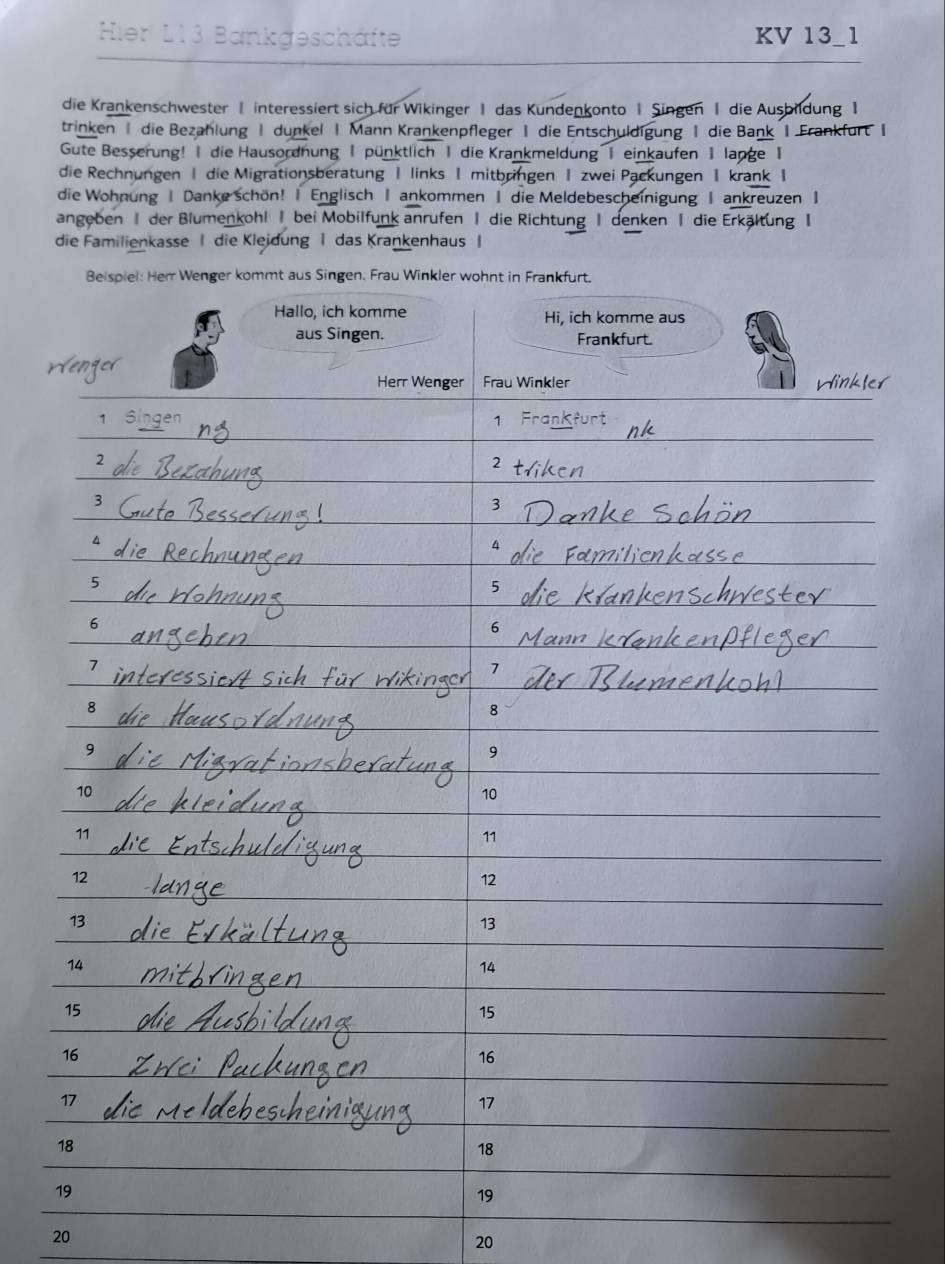 Hier! L13 Bankgeschäfte
KV 13_1
die Krankenschwester | interessiert sich für Wikinger | das Kundenkonto | Singen | die Ausbildung |
trinken | die Bezahlung | dunkel | Mann Krankenpfleger | die Entschuldigung | die Bank | Frankfurt |
Gute Besserung! | die Hausordnung | pünktlich | die Krankmeldung | einkaufen | lange |
die Rechnungen | die Migrationsberatung | links | mitbringen | zwei Packungen | krank |
die Wohnung | Danke schön! | Englisch | ankommen | die Meldebescheinigung | ankreuzen |
angeben | der Blumenkohl | bei Mobilfunk anrufen | die Richtung | denken | die Erkältung |
die Familienkasse | die Kleidung | das Krankenhaus |
Beispiel: Herr Wenger kommt aus Singen. Frau Winkler wohnt in Frankfurt.
Hallo, ich komme
aus Singen.
Hi, ich komme aus
Frankfurt.
Wenger
Herr Wenger
Frau Winkler
Winkler
1 Singen ng
1 Frankfurt nk
2 die Bezahung
2 triken
3 Gute Besserung!
3 Danke schön
4 die Rechnungen
4 die Familienkasse
5 die Wohnung
5 die Krankenschwester
6 angeben
6 Mann Krankenpfleger
7 interessiert sich für Wikinger
7 der Blumenkohl
8 die Hausordnung
8
9 die Migrationsberatung
9
10 die Kleidung
10
11 die Entschuldigung
11
12 lange
12
13 die Erkältung
13
14 mitbringen
14
15 die Ausbildung
15
16 zwei Packungen
16
17 die Meldebescheinigung
17
18
18
19
19
20
20